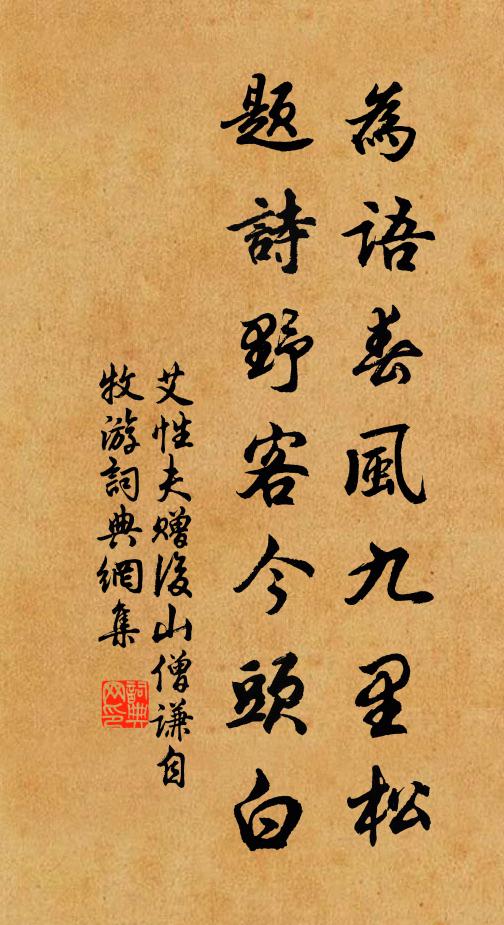 為語春風九里松
題詩野客今頭白
艾性夫贈後山僧謙自
牧游詞典網集
詞典
网印